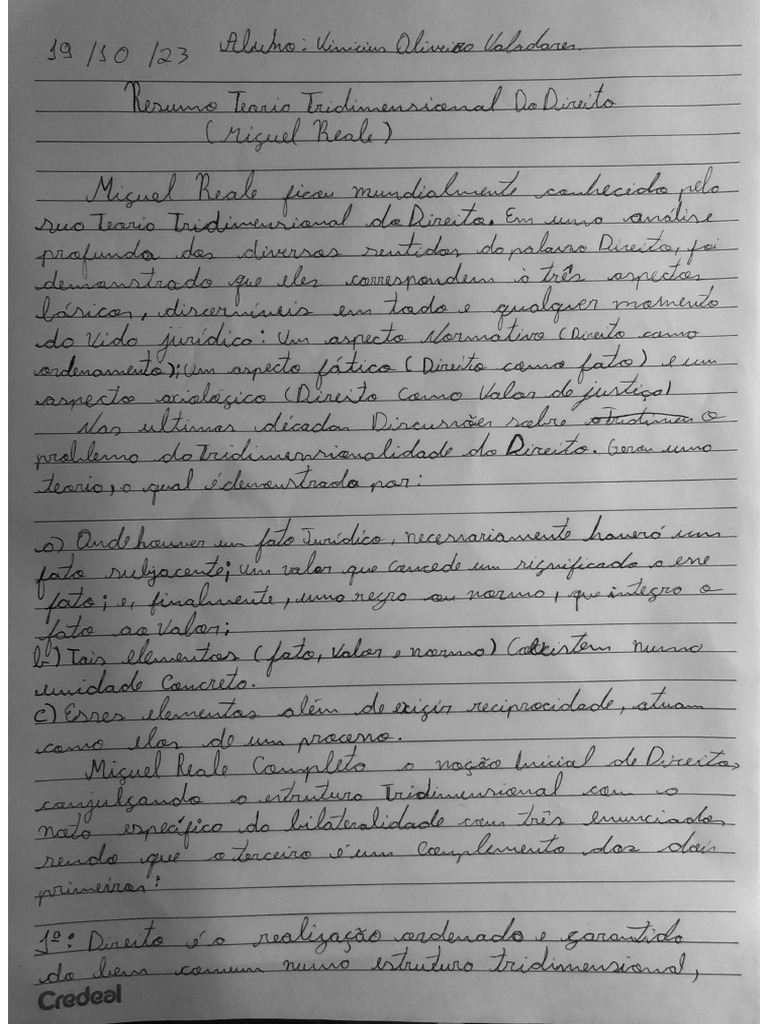 19/10/23 Aluno: Vinicius Oliveira Valadares.
Resumo Teoria Tridimensional Do Direito
(Miguel Reale)
Miguel Reale ficou mundialmente conhecido pela
sua Teoria Tridimensional do Direito. Em uma análise
profunda dos diversos sentidos da palavra Direito, foi
demonstrado que eles correspondem à três aspectos
básicos, discerníveis em todo e qualquer momento
da vida jurídica: Um aspecto Normativo (Direito como
ordenamento); Um aspecto fático (Direito como fato) e um
aspecto axiológico (Direito Como Valor de justiça)
Nas ultimas décadas Discussões sobre o Tridimen O
problema da Tridimensionalidade do Direito. Gerou uma
teoria, a qual é demonstrada por:
a) Onde houver um fato Jurídico, necessariamente haverá um
fato subjacente; um valor que concede um significado a esse
fato; e, finalmente, uma regra ou norma, que integra o
fato ao Valor;
b) Tais elementos (fato, valor e norma) Coexistem numa
unidade Concreta.
c) Esses elementos além de exigir reciprocidade, atuam
como elos de um processo.
Miguel Reale Completa a noção Inicial de Direito,
conjulgando a estrutura Tridimensional com a
nota específica da bilateralidade com três enunciados,
sendo que o terceiro é um Complemento dos dois
primeiros:
1º: Direito é a realização ordenada e garantida
do bem comum numa estrutura tridimensional,
Credeal